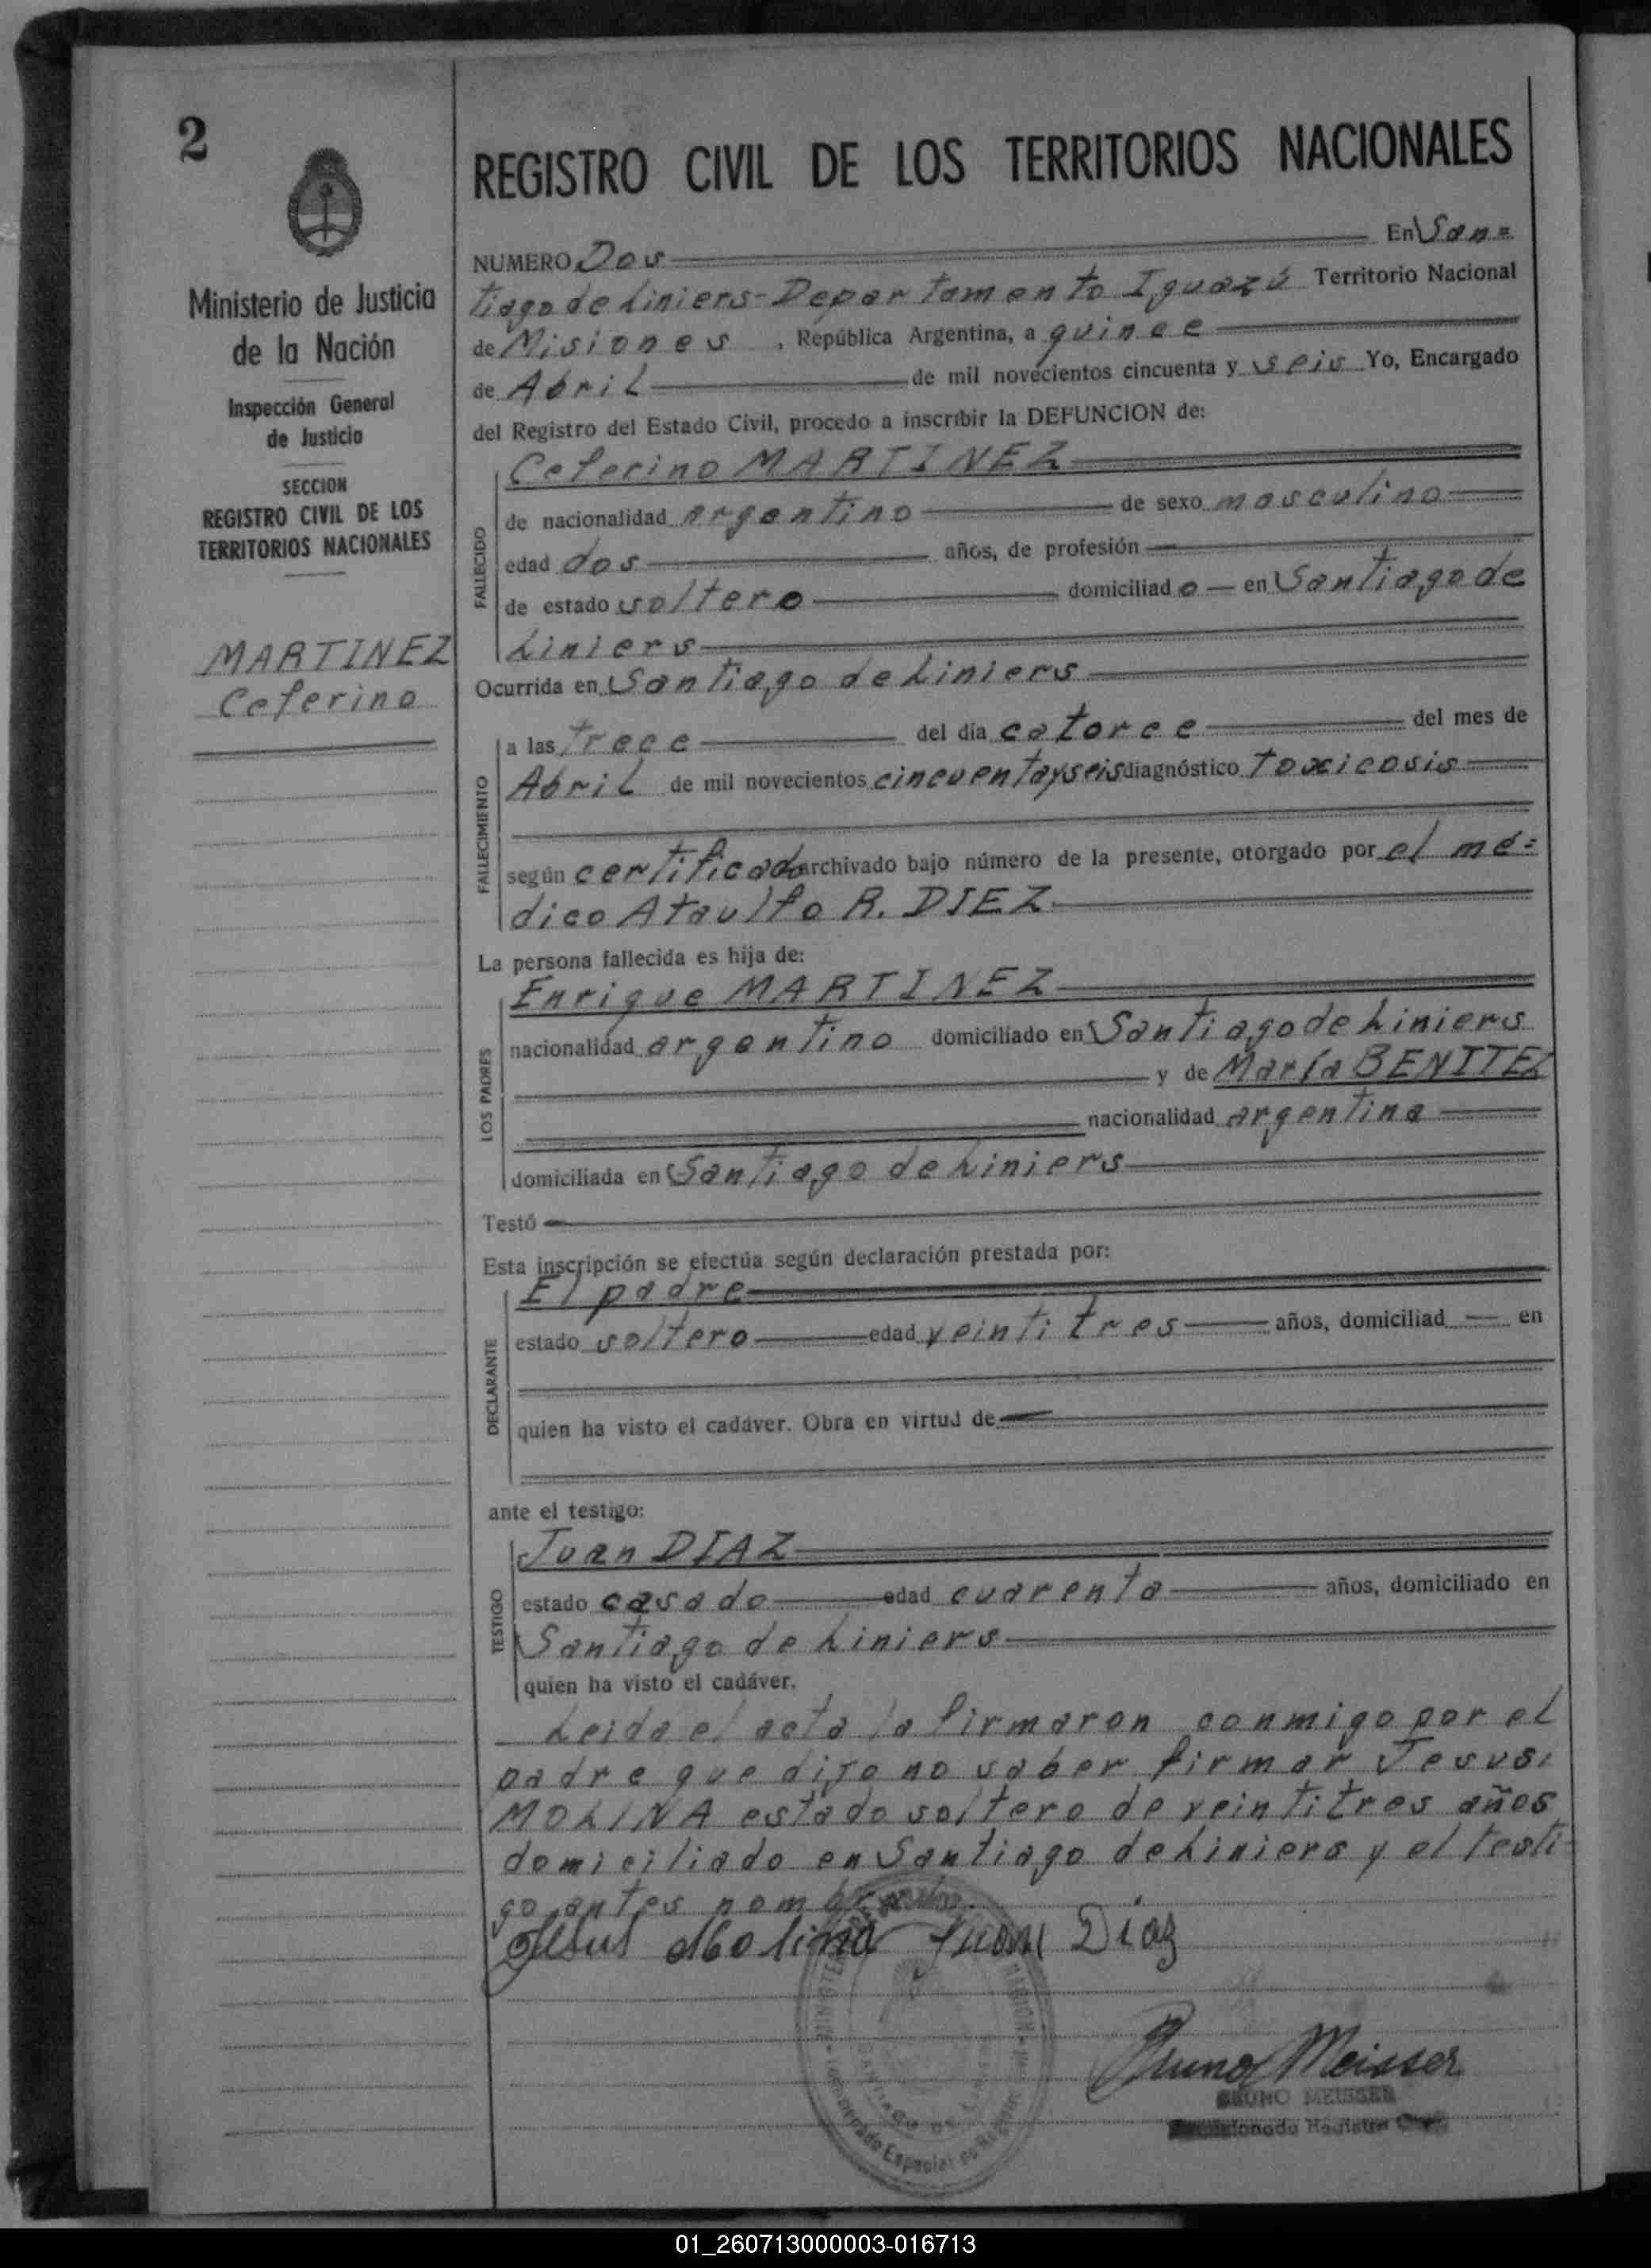 2
Ministerio de Justicia
de la Nación
Inspección General
de Justicia
SECCION
REGISTRO CIVIL DE LOS
TERRITORIOS NACIONALES
MARTINEZ
Ceferino
REGISTRO CIVIL DE LOS TERRITORIOS NACIONALES
NUMERO Dos En San=
tiago de Liniers-Departamento Iguazú Territorio Nacional
de Misiones, República Argentina, a quince
de Abril de mil novecientos cincuenta y seis Yo, Encargado
del Registro del Estado Civil, procedo a inscribir la DEFUNCION de:
FALLECIDO
Ceferino MARTINEZ
de nacionalidad argentino de sexo masculino
edad dos años, de profesión
de estado soltero domiciliado en Santiago de
Liniers
Ocurrida en Santiago de Liniers
FALLECIMIENTO
a las trece del día catorce del mes de
Abril de mil novecientos cincuenta y seis diagnóstico toxicosis
según certificado archivado bajo número de la presente, otorgado por el mé=
dico Ataulfo R. DIEZ
La persona fallecida es hija de:
LOS PADRES
Enrique MARTINEZ
nacionalidad argentino domiciliado en Santiago de Liniers
y de María BENITEZ
nacionalidad argentina
domiciliada en Santiago de Liniers
Testó
Esta inscripción se efectúa según declaración prestada por:
DECLARANTE
El padre
estado soltero edad veintitres años, domiciliad en
quien ha visto el cadáver. Obra en virtud de
ante el testigo:
TESTIGO
Juan DIAZ
estado casado edad cuarenta años, domiciliado en
Santiago de Liniers
quien ha visto el cadáver.
Leida el acta la firmaron conmigo por el
padre que dijo no saber firmar Jesus
MOLINA estado soltero de veintitres años
domiciliado en Santiago de Liniers y el testi-
go antes nombrado.
Jesus Molina Juan Diaz
Bruno Meisser
BRUNO MEISSER
01_260713000003-016713